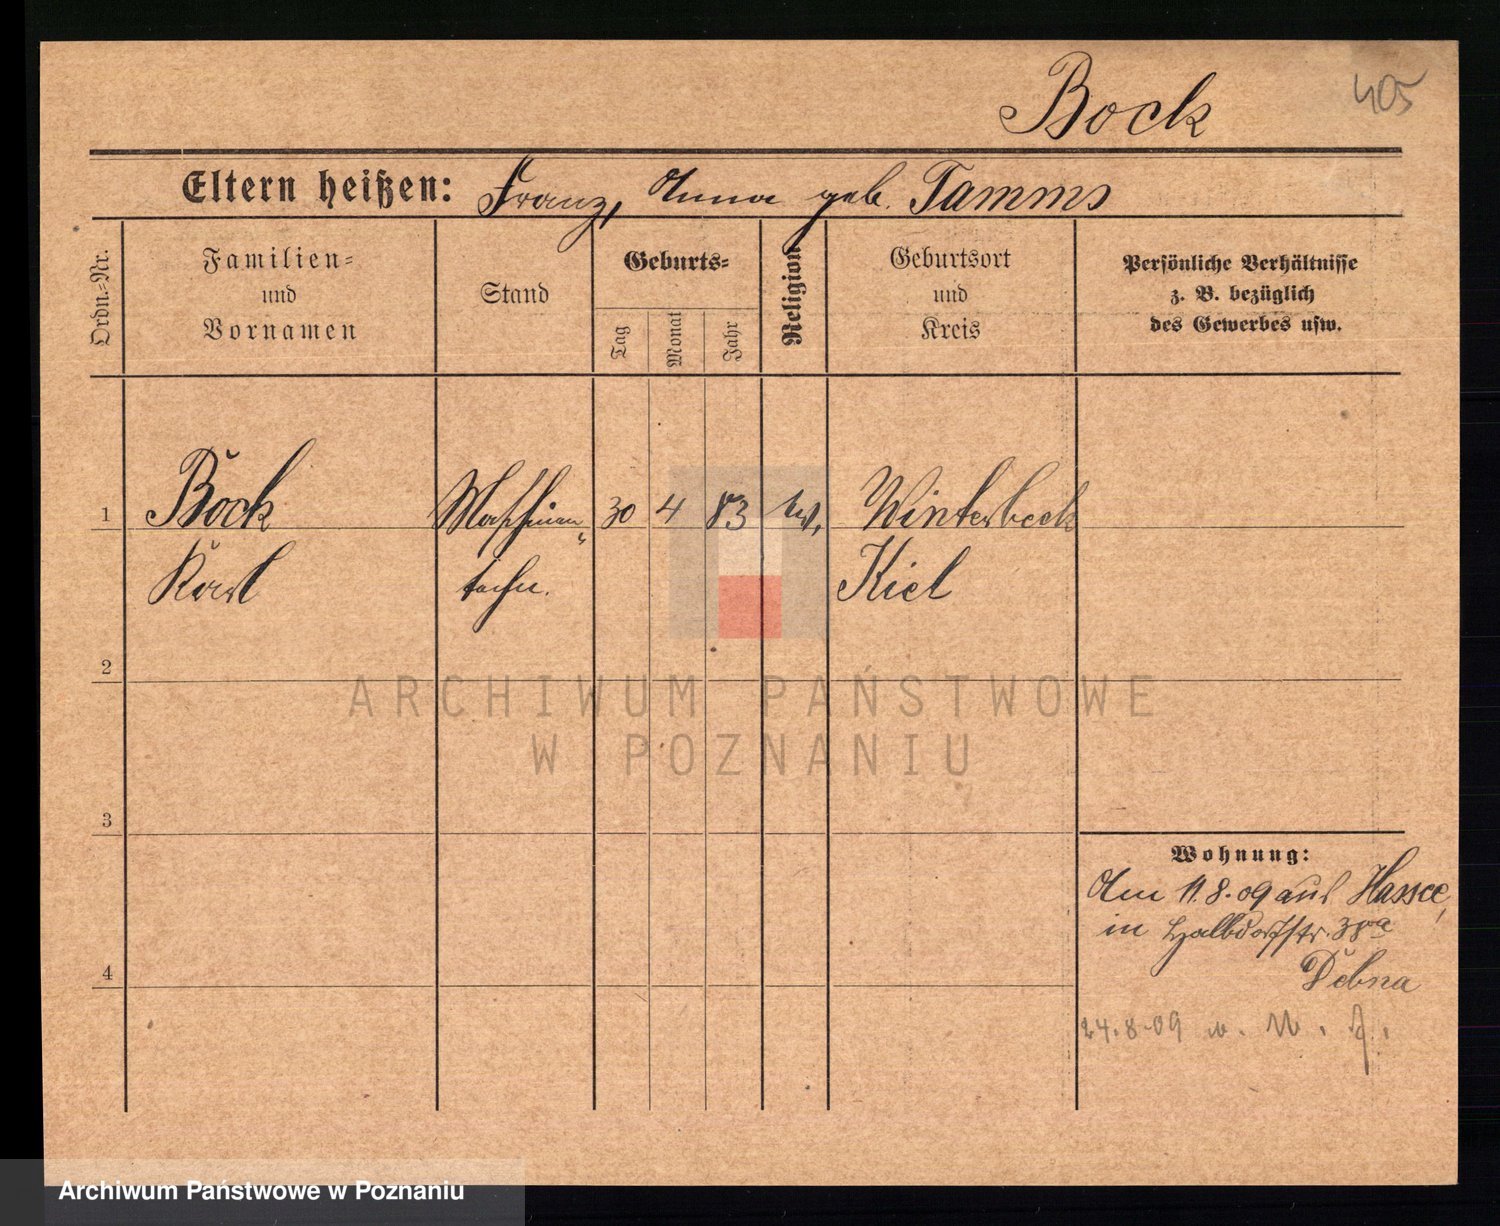 Bock
405
Eltern heißen: Franz, Anna geb. Tamms
Ordn.-Nr.
Familien=
und
Vornamen
Stand
Geburts=
Tag
Monat
Jahr
Religion
Geburtsort
und
Kreis
Persönliche Verhältnisse
z. B. bezüglich
des Gewerbes usw.
1
Bock
Karl
Maschinen
techn.
30
4
83
ev.
Winterbeck
Kiel
2
3
4
Wohnung:
Am 11.8.09 aus Hassee,
in Halbdorfstr. 38a
Debna
24.8.09
ARCHIWUM PAŃSTWOWE
W POZNANIU
Archiwum Państwowe w Poznaniu